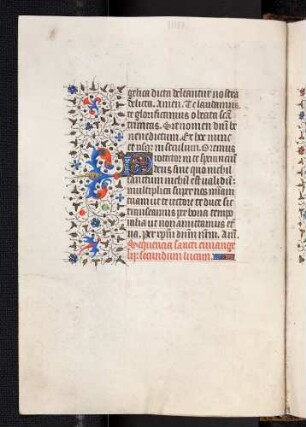 gelica dicta deleantur nostra
delicta. Amen. Te laudamus
te glorificamus o beata
trinitas. Sit nomen dnī be
nedictum. Ex hoc nunc
et usqȝ in seculum. Oremus
Protector in te sperancium
deus sine quo nichil
sanctum nichil est validū
multiplica super nos miseri
cordiam ut te rectore te duce sic
transeamus per bona tempo
ralia ut non amittamus et
na. per xpm̄ dnm̄ nrm̄. Am̄
Sequencia sancti euuange
lii secundum lucam